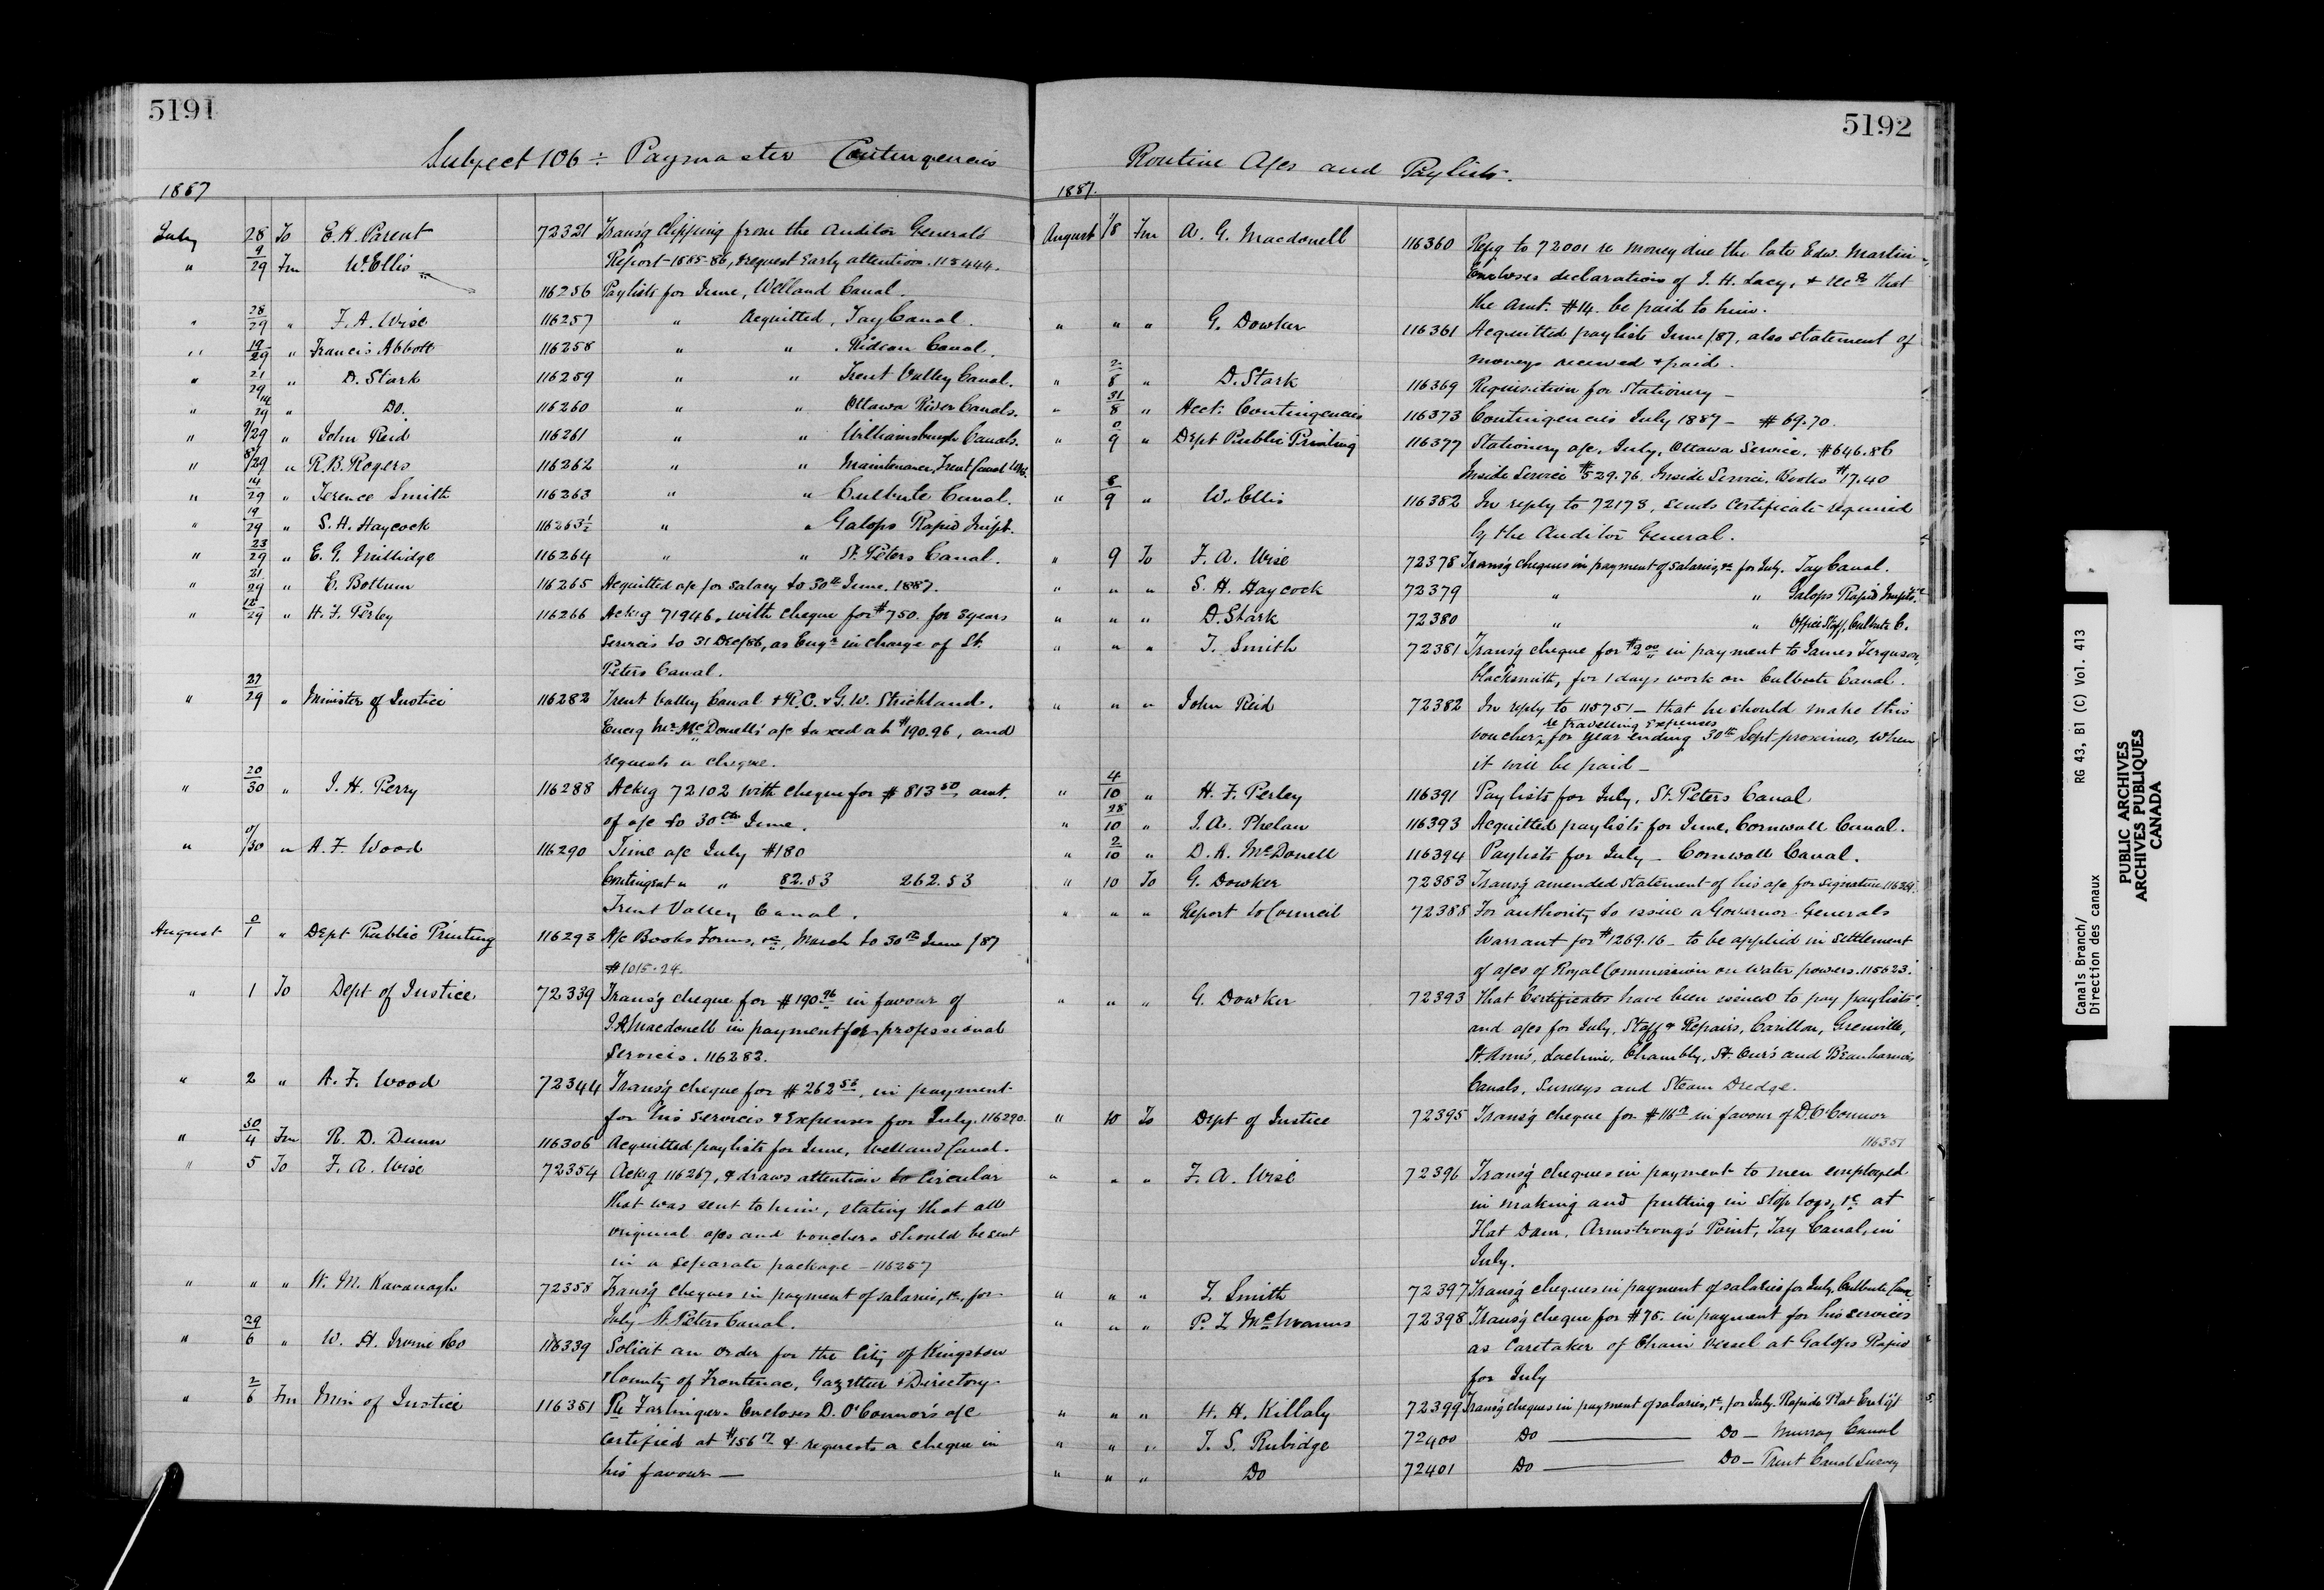 5191
Subject 106 ÷ Paymaster Contingencies
1887
July 28 To E. K. Parent 72321 Transg Clipping from the Auditor General's
" 9/29 Fm W. Ellis Report 1885-86, & request early attention. 115444.
116256 Paylists for June, Welland Canal.
" 28/29 " F. A. Wise 116257 " Acquitted, Tay Canal.
" 19/29 " Francis Abbott 116258 " " Rideau Canal.
" 21/29 " D. Stark 116259 " " Trent Valley Canal.
" 14/29 " Do. 116260 " " Ottawa River Canals.
" 9/29 " John Reid 116261 " " Williamsburgh Canals.
" 8/29 " R. B. Rogers 116262 " " Maintenance, Trent Canal
" 14/29 " Terence Smith 116263 " " Culbute Canal.
" 19/29 " S. H. Haycock 116263½ " " Galops Rapid Impt.
" 23/29 " E. G. Millidge 116264 " " St. Peters Canal.
" 21/29 " E. Bollum 116265 Acquitted a/c for salary to 30th June. 1887.
" 12/29 " H. F. Perley 116266 Ackg 71946, with cheque for $750. for 3 years
services to 31 Dec/86, as Engr in charge of St.
Peters Canal.
" 27/29 " Minister of Justice 116282 Trent Valley Canal & R. C. & G. W. Strickland.
Encg Mr McDonell's a/c taxed at $190.96, and
requests a cheque.
" 20/30 " J. H. Perry 116288 Ackg 72102 with cheque for $813 50, amt.
of a/c to 30th June.
" 0/30 " A. F. Wood 116290 Time a/c July $180
Contingent " " 82.53 262.53
Trent Valley Canal.
August 0/1 " Dept Public Printing 116293 A/c Books Forms, &c, March to 30th June /87
$1015.24.
" 1 To Dept of Justice 72339 Transg cheque for $190 96 in favour of
J. A. Macdonell in payment for professional
services. 116282.
" 2 " A. F. Wood 72344 Transg cheque for $262 53, in payment
for his services & Expenses for July. 116290.
" 30/4 Fm R. D. Dunn 116306 Acquitted paylists for June, Welland Canal.
" 5 To F. A. Wise 72354 Ackg 116267, & draws attention to Circular
that was sent to him, stating that all
original a/cs and vouchers should be sent
in a separate package - 116257
" " " W. M. Kavanagh 72358 Transg cheques in payment of salaries, &c, for
July St. Peters Canal.
" 29/6 " W. H. Irwine & Co 116339 Solicit an order for the City of Kingston
& County of Frontenac, Gazetteer & Directory
" 2/6 Fm Min of Justice 116351 Re Farlinger. Encloses D. O'Connor's a/c
Certified at $156 17 & requests a cheque in
his favour —
5192
Routine A/cs and Paylists.
1887.
August 1/8 Fm A. G. Macdonell 116360 Refg to 72001 re money due the late Edw. Martin,
Encloses declaration of J. H. Lacy, & recds that
the amt. $14. be paid to him.
" " " G. Dowker 116361 Acquitted paylists June /87, also statement of
moneys received & paid.
" 2/8 " D. Stark 116369 Requisition for Stationery —
" 31/8 " Acct: Contingencies 116373 Contingencies July 1887 — $69.70.
" 0/9 " Dept Public Printing 116377 Stationery a/c, July, Ottawa Service, $646.86
Inside Service $529.76. Inside Service, Books $17.40
" 8/9 " W. Ellis 116382 In reply to 72173, sends certificate required
by the Auditor General.
" 9 To F. A. Wise 72378 Transg cheques in payment of salaries, &c for July. Tay Canal.
" " " S. H. Haycock 72379 " " Galops Rapid Impts.
" " " D. Stark 72380 " " Office Staff, Culbute C.
" " " T. Smith 72381 Transg cheque for $2 00 in payment to James Ferguson,
blacksmith, for 1 days work on Culbute Canal.
" " " John Reid 72382 In reply to 115751 — that he should make this
re travelling expenses
voucher for year ending 30th Sept. proximo, when
it will be paid —
" 4/10 " H. F. Perley 116391 Paylists for July, St. Peters Canal
" 28/10 " J. A. Phelan 116393 Acquitted paylists for June, Cornwall Canal.
" 2/10 " D. A. McDonell 116394 Paylists for July — Cornwall Canal.
" 10 To G. Dowker 72383 Transg amended statement of his a/c for signature
" " " Report to Council 72388 For authority to issue a Governor Generals
Warrant for $1269.16 — to be applied in settlement
of a/cs of Royal Commission on Water powers. 115623.
" " " G. Dowker 72393 That Certificates have been issued to pay paylists
and a/cs for July, Staff & Repairs, Carillon, Grenville,
St. Ann's, Lachine, Chambly, St. Ours and Beauharnois
Canals, Surveys and Steam Dredge.
" 10 To Dept of Justice 72395 Transg cheque for $116 17 in favour of D. O'Connor
116351
" " " F. A. Wise 72396 Transg cheques in payment to men employed
in making and putting in stop logs, &c at
Flat Dam, Armstrong's Point, Tay Canal, in
July.
" " " T. Smith 72397 Transg cheques in payment of salaries for July, Culbute Canal
" " " P. Z. 72398 Transg cheque for $75. in payment for his services
as Caretaker of Chain Vessel at Galops Rapid
for July
" " " H. H. Killaly 72399 Transg cheques in payment of salaries, &c, for July. Rapide Plat Enlgt
" " " T. S. Rubidge 72400 Do — Do — Murray Canal
" " " Do 72401 Do — Do — Trent Canal Survey
Canals Branch/
Direction des canaux
RG 43, B1 (C) Vol. 413
PUBLIC ARCHIVES
ARCHIVES PUBLIQUES
CANADA